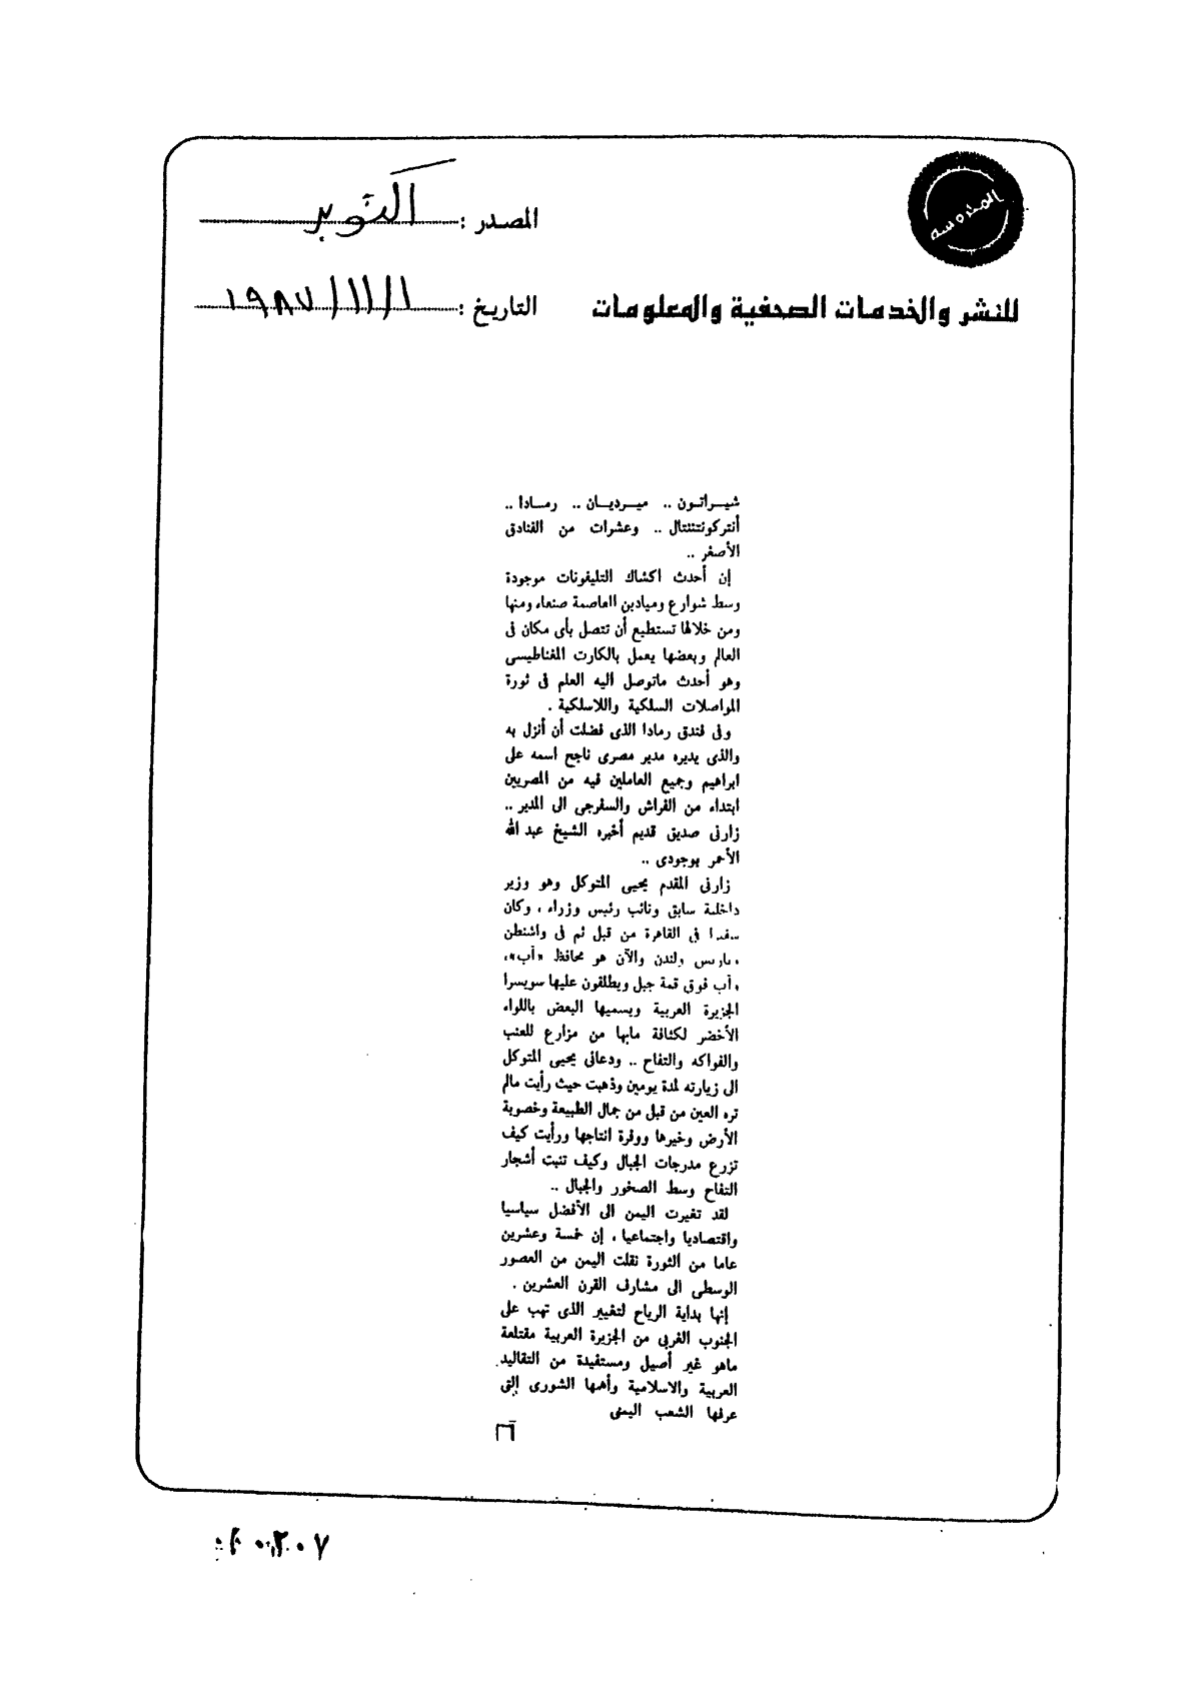 المحروسة
المصدر : أكتوبر
للنشر والخدمات الصحفية والمعلومات
التاريخ : ١٩٨٧/١١/١
شيـراتـون .. ميـرديـان .. رمـادا ..
أنتركونتنتال .. وعشرات من الفنادق
الأصغر ..
إن أحدث اكشاك التليفونات موجودة
وسط شوارع وميادين العاصمة صنعاء ومنها
ومن خلالها تستطيع أن تتصل بأى مكان فى
العالم وبعضها يعمل بالكارت المغناطيسى
وهو أحدث ماتوصل اليه العلم فى ثورة
المواصلات السلكية واللاسلكية .
وفى فندق رمادا الذى فضلت أن أنزل به
والذى يديره مدير مصرى ناجح اسمه على
ابراهيم وجميع العاملين فيه من المصريين
ابتداء من الفراش والسفرجى الى المدير ..
زارنى صديق قديم أخبره الشيخ عبد الله
الأحمر بوجودى ..
زارنى المقدم يحيى المتوكل وهو وزير
داخلية سابق ونائب رئيس وزراء ، وكان
سفيرا فى القاهرة من قبل ثم فى واشنطن
وباريس ولندن والآن هو محافظ «أب»،
وأب فوق قمة جبل ويطلقون عليها سويسرا
الجزيرة العربية ويسميها البعض باللواء
الأخضر لكثافة مابها من مزارع للعنب
والفواكه والتفاح .. ودعانى يحيى المتوكل
الى زيارته لمدة يومين وذهبت حيث رأيت مالم
تره العين من قبل من جمال الطبيعة وخصوبة
الأرض وخيرها ووفرة انتاجها ورأيت كيف
تزرع مدرجات الجبال وكيف تنبت أشجار
التفاح وسط الصخور والجبال ..
لقد تغيرت اليمن الى الأفضل سياسيا
واقتصاديا واجتماعيا ، إن خمسة وعشرين
عاما من الثورة نقلت اليمن من العصور
الوسطى الى مشارف القرن العشرين .
إنها بداية الرياح لتغيير الذى تهب على
الجنوب الغربى من الجزيرة العربية مقتلعة
ماهو غير أصيل ومستفيدة من التقاليد
العربية والاسلامية وأهمها الشورى التى
عرفها الشعب اليمنى